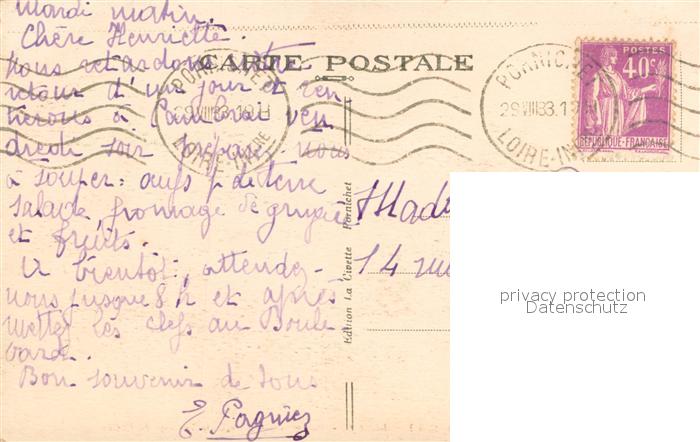 Mardi matin.
Chère Henriette.
Nous retardons notre
retour d'un jour et ren
trerons à Paimboeuf ven
dredi soir préparez nous
à souper: œufs p. de terre
salade, fromage de gruyère
et fruits.
A bientôt, attendez-
nous jusque 8 h et après
mettez les clefs au Boule
vard.
Bon souvenir de tous
E. Pagniez
CARTE POSTALE
PORNICHET
29 VIII 33.1
LOIRE-INFRE
PORNICHET
29 VIII 33.1
LOIRE-IN
POSTES
40c
REPUBLIQUE-FRANÇAISE
Edition La Civette Pornichet
Mad
14 rue
privacy protection
Datenschutz